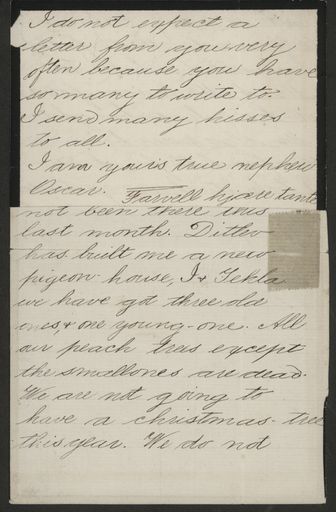 I do not expect a
letter from you very
often because you have
so many to write to.
I send many kisses
to all.
I am yours true nephew
Oscar. Farvell hjære tante
not been there this
last month. Ditlev
has built me a new
pigeon-house, I & Tekla
we have got three old
ones, & one young-one. All
our peach trees except
the smallones are dead.
We are not going to
have a christmas-tree
this year. We do not